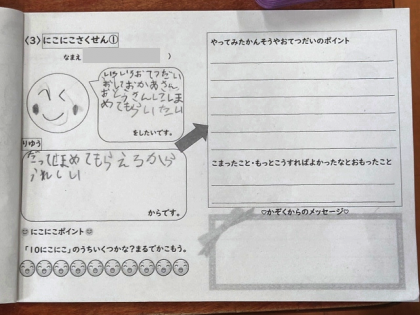 〈3〉にこにこさくせん①
なまえ
)
いろいろおてつだい
おしておかあさん、
おとうさんにしほ
めてもらいたい
をしたいです。
りゆう
だってほめてもらえるから
うれしい
からです。
にこにこポイント
「10にこにこ」のうちいくつかな?まるでかこもう。
やってみたかんそうやおてつだいのポイント
こまったこと・もっとこうすればよかったなとおもったこと
♡かぞくからのメッセージ♡